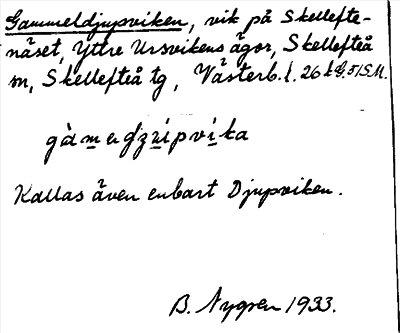 Gammeldjupviken, vik på Skellefte-
näset, Yttre Ursvikens ägor, Skellefteå
m, Skellefteå tg, Västerb. l. 26 k G. 5/S.M.
gàmeldzuipvika
Kallas även enbart Djupviken.
B. Nygren 1933.